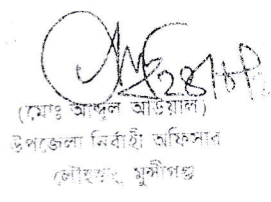 (মোঃ আব্দুল আউয়াল)
উপজেলা নির্বাহী অফিসার
লৌহজং, মুন্সীগঞ্জ